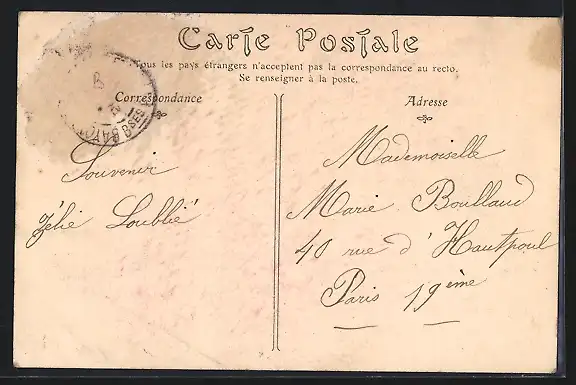 Carte Postale
Tous les pays étrangers n'acceptent pas la correspondance au recto.
Se renseigner à la poste.
Correspondance
Adresse
Souvenir
Zélie Loublié
Mademoiselle
Marie Boullaud
40 rue d'Hautpoul
Paris 19ème